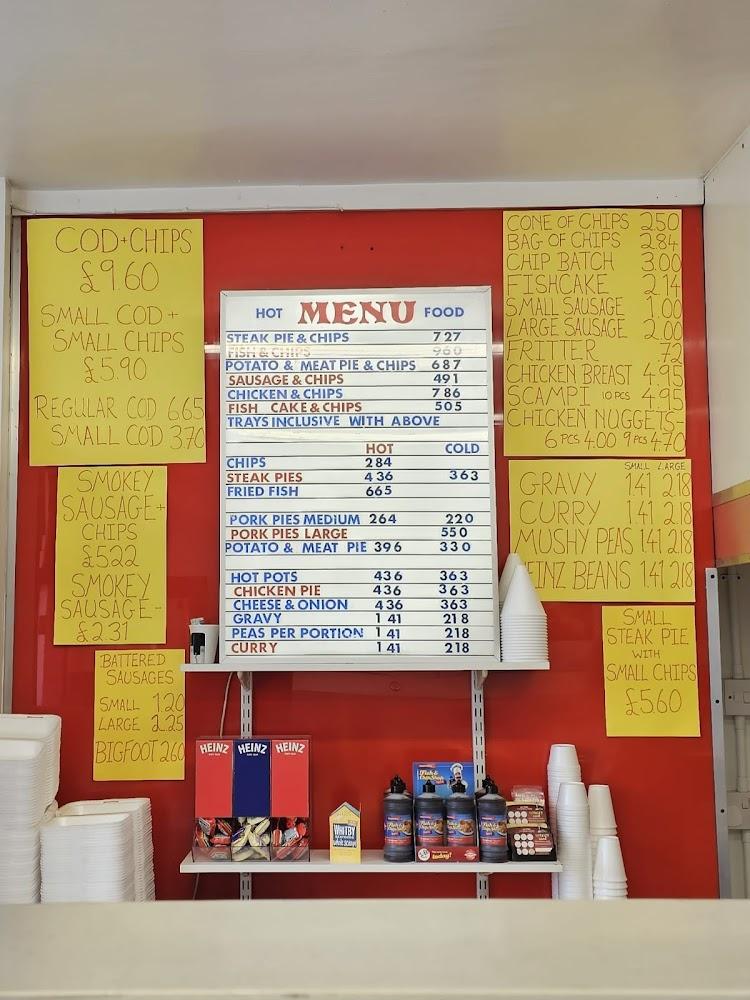 COD+CHIPS
£9.60
SMALL COD+
SMALL CHIPS
£5.90
REGULAR COD 6.65
SMALL COD 3.70
SMOKEY
SAUSAGE+
CHIPS
£5.22
SMOKEY
SAUSAGE-
£2.31
BATTERED
SAUSAGES
SMALL 1.20
LARGE 2.25
BIGFOOT 2.60
HOT MENU FOOD
STEAK PIE & CHIPS 727
FISH & CHIPS 960
POTATO & MEAT PIE & CHIPS 687
SAUSAGE & CHIPS 491
CHICKEN & CHIPS 786
FISH CAKE & CHIPS 505
TRAYS INCLUSIVE WITH ABOVE
HOT COLD
CHIPS 284
STEAK PIES 436 363
FRIED FISH 665
PORK PIES MEDIUM 264 220
PORK PIES LARGE 550
POTATO & MEAT PIE 396 330
HOT POTS 436 363
CHICKEN PIE 436 363
CHEESE & ONION 436 363
GRAVY 141 218
PEAS PER PORTION 141 218
CURRY 141 218
CONE OF CHIPS 2.50
BAG OF CHIPS 2.84
CHIP BATCH 3.00
FISHCAKE 2.14
SMALL SAUSAGE 1.00
LARGE SAUSAGE 2.00
FRITTER .72
CHICKEN BREAST 4.95
SCAMPI 10 PCS 4.95
CHICKEN NUGGETS-
6 PCS 4.00 9 PCS 4.70
SMALL LARGE
GRAVY 1.41 2.18
CURRY 1.41 2.18
MUSHY PEAS 1.41 2.18
EINZ BEANS 1.41 2.18
SMALL
STEAK PIE
WITH
SMALL CHIPS
£5.60
HEINZ HEINZ HEINZ
WHITBY